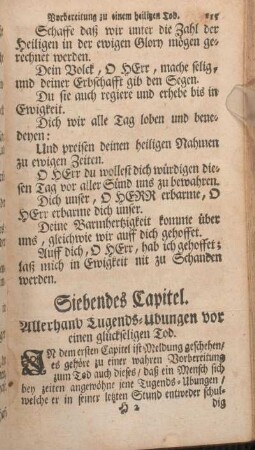 Vorbereitung zu einem heiligen Tod.
Schaffe daß wir unter die Zahl der
Heiligen in der ewigen Glory mögen ge-
rechnet werden.
Dein Volck, O HErr, mache selig,
und deiner Erbschafft gib den Segen.
Du sie auch regiere und erhebe bis in
Ewigkeit.
Dich wir alle Tag loben und bene-
deyen:
Und preisen deinen heiligen Nahmen
zu ewigen Zeiten.
O HErr du wollest dich würdigen die-
sen Tag vor aller Sünd uns zu bewahren.
Dich unser, O HERR erbarme, O
HErr erbarme dich unser.
Deine Barmhertzigkeit komme über
uns, gleichwie wir auff dich gehoffet.
Auff dich, O HErr, hab ich gehoffet;
laß mich in Ewigkeit nit zu Schanden
werden.
Siebendes Capitel.
Allerhand Tugends-Ubungen vor
einen glückseligen Tod.
IN dem ersten Capitel ist Meldung geschehen,
es gehöre zu einer wahren Vorbereitung
zum Tod auch dieses, daß ein Mensch sich
bey zeiten angewöhne jene Tugends-Ubungen,
welche er in seiner letzten Stund entweder schul-
dig